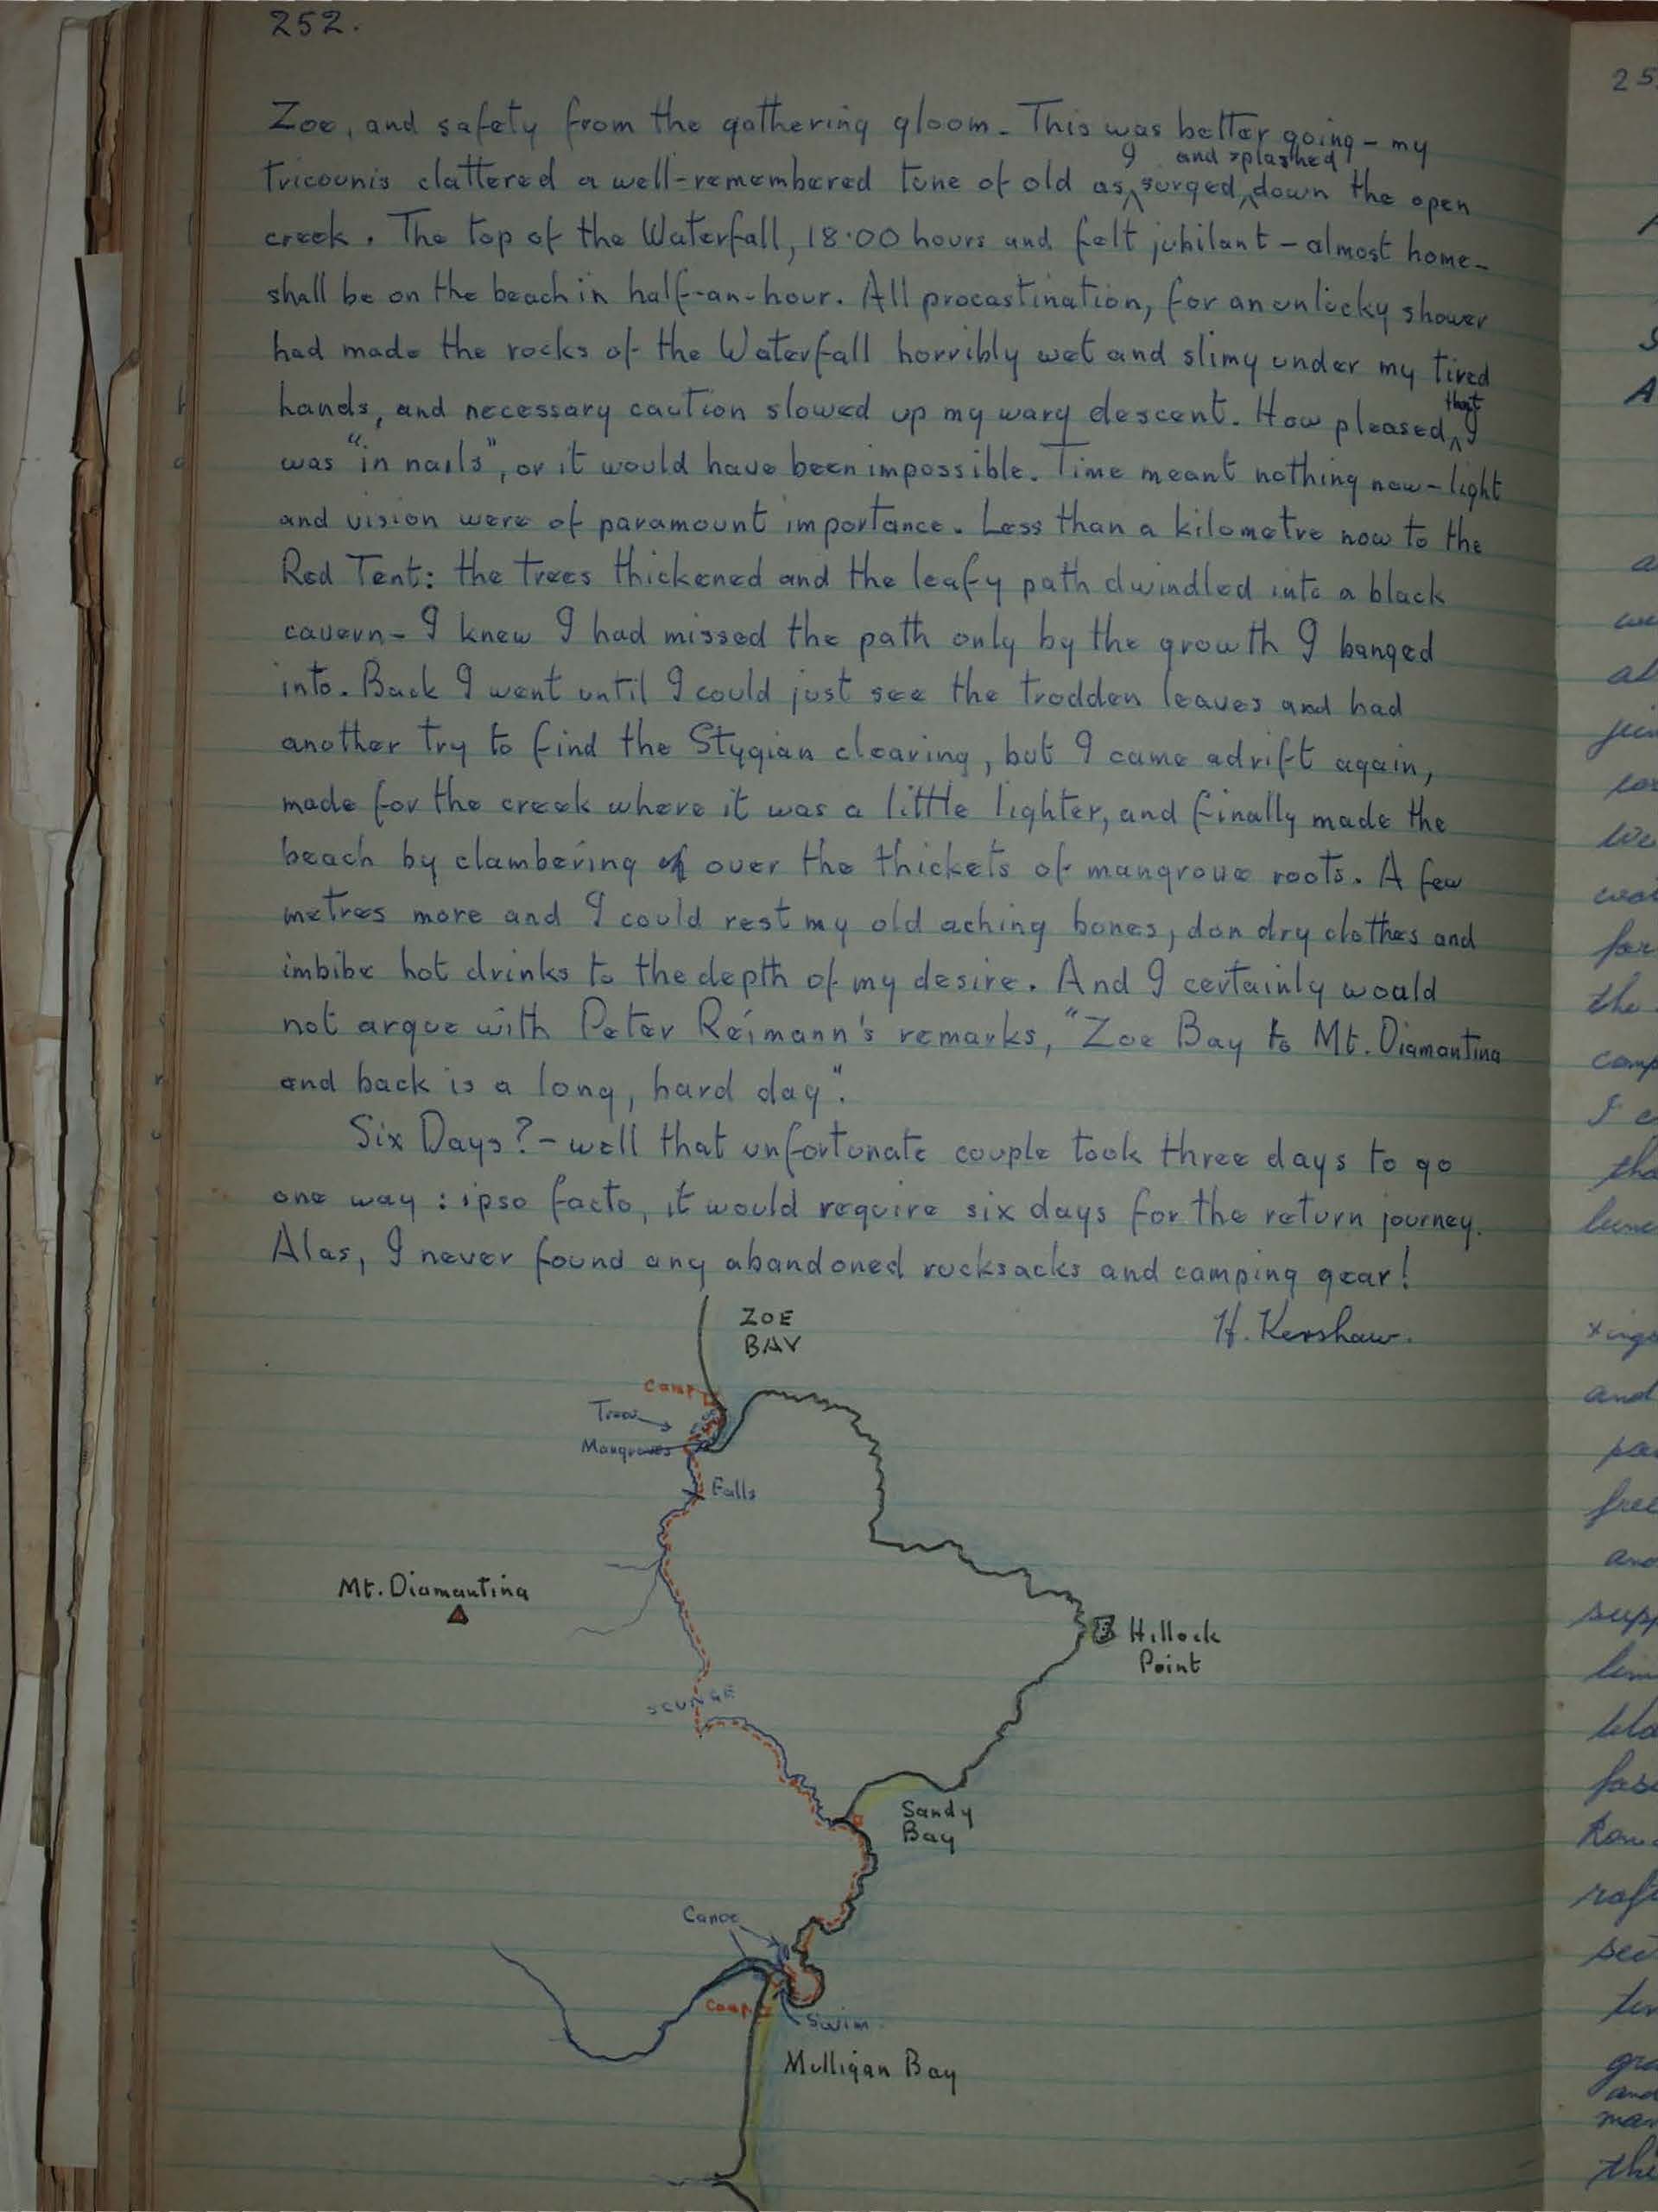 252.
Zoe, and safety from the gathering gloom - This was better going - my
tricounis clattered a well-remembered tune of old as I surged and splashed down the open
creek. The top of the Waterfall, 18.00 hours and felt jubilant - almost home -
shall be on the beach in half-an-hour. All procastination, for an unlucky shower
had made the rocks of the Waterfall horribly wet and slimy under my tired
hands, and necessary caution slowed up my wary descent. How pleased that I
was "in nails", or it would have been impossible. Time meant nothing now - light
and vision were of paramount importance. Less than a kilometre now to the
Red Tent: the trees thickened and the leafy path dwindled into a black
cavern - I knew I had missed the path only by the growth I banged
into. Back I went until I could just see the trodden leaves and had
another try to find the Stygian clearing, but I came adrift again,
made for the creek where it was a little lighter, and finally made the
beach by clambering over the thickets of mangrove roots. A few
metres more and I could rest my old aching bones, don dry clothes and
imbibe hot drinks to the depth of my desire. And I certainly would
not argue with Peter Reimann's remarks, "Zoe Bay to Mt. Diamantina
and back is a long, hard day".
Six Days? - well that unfortunate couple took three days to go
one way : ipso facto, it would require six days for the return journey.
Alas, I never found any abandoned rucksacks and camping gear!
H. Kershaw.
ZOE
BAY
Camp
Trees
Mangroves
Falls
Mt. Diamantina
Hillock
Point
SCUNGE
Sandy
Bay
Canoe
Camp
Swim
Mulligan Bay